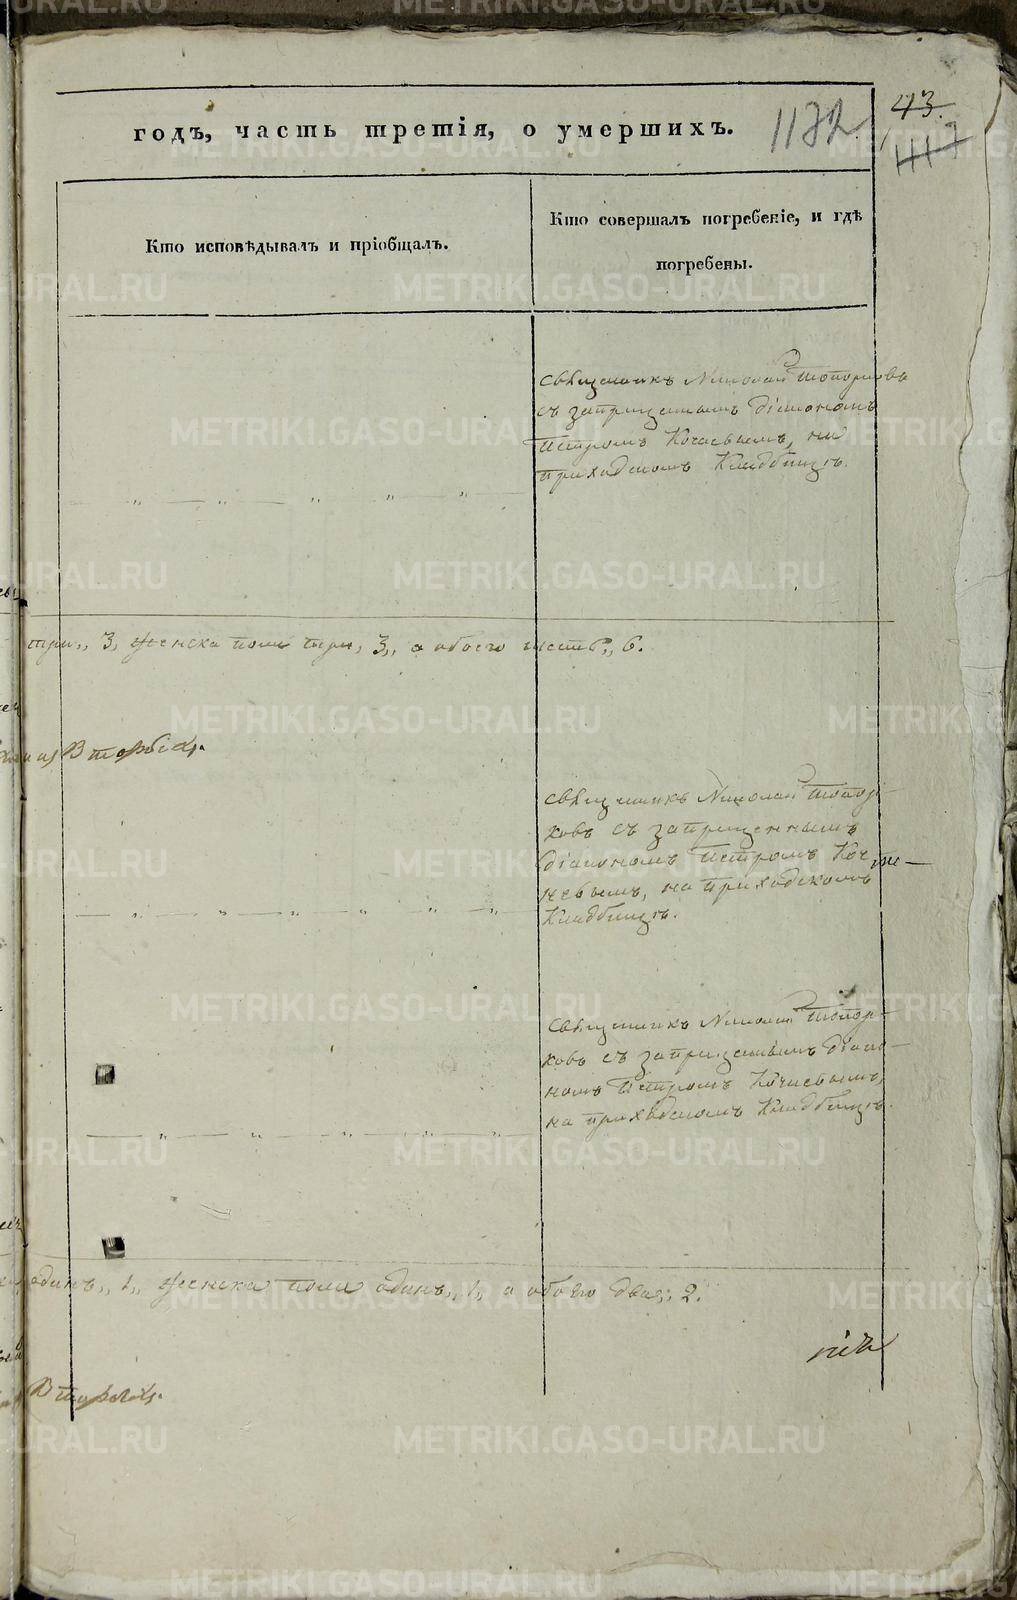 годъ, часть третія, о умершихъ.
1172
43.
1117
Кто исповѣдывалъ и пріобщалъ.
Кто совершалъ погребеніе, и гдѣ
погребены.
священникъ Николай Топорковъ
съ запрещеннымъ діакономъ
Петромъ Кочневымъ, на
приходскомъ Кладбищѣ.
три,, 3, женска пола три, 3,, а обоего шесть,, 6.
священникъ Николай Топор-
ковъ съ запрещеннымъ
діакономъ Петромъ Коч-
невымъ, на приходскомъ
Кладбищѣ.
священникъ Николай Топор-
ковъ съ запрещеннымъ діако-
номъ Петромъ Кочневымъ,
на приходскомъ Кладбищѣ.
одинъ,, 1,, женска пола одинъ,, 1, а обоего два,, 2.
METRIKI.GASO-URAL.RU